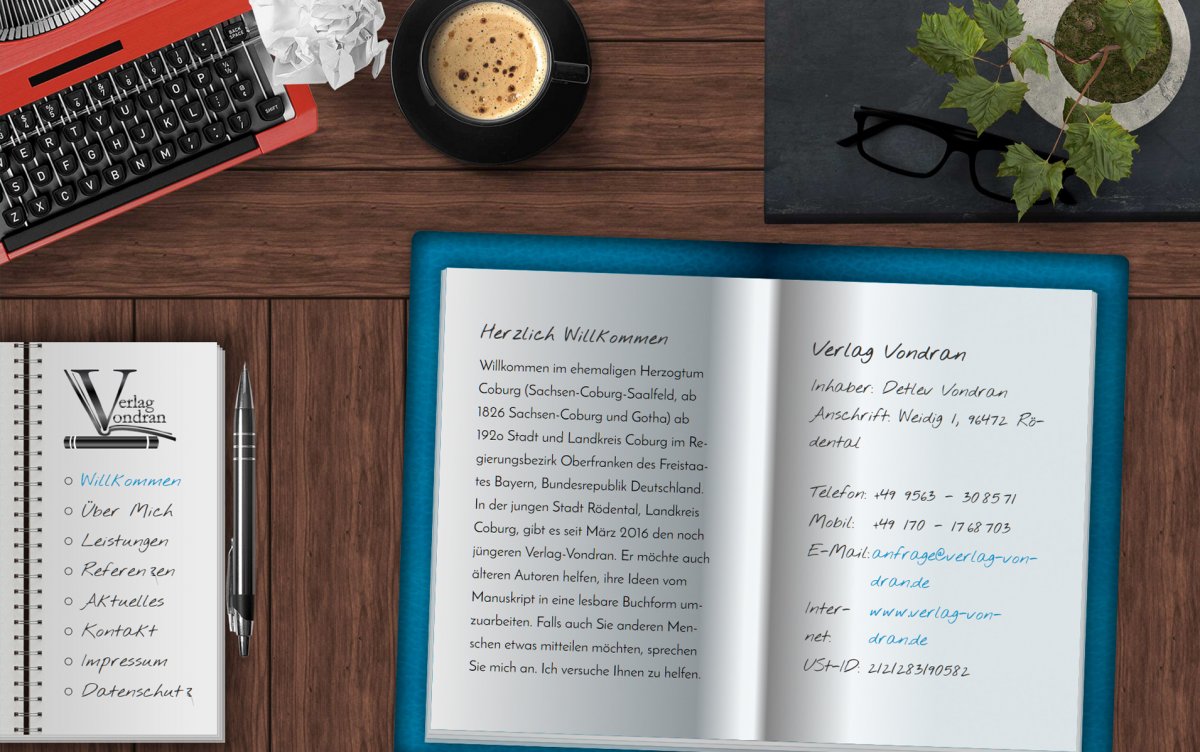 BACK SPACE
W E R T Y U I O P
S D F G H J K L
SHIFT
Z X C V B N M
Verlag
Vondran
Willkommen
Über Mich
Leistungen
Referenzen
Aktuelles
Kontakt
Impressum
Datenschutz
Herzlich Willkommen
Willkommen im ehemaligen Herzogtum
Coburg (Sachsen-Coburg-Saalfeld, ab
1826 Sachsen-Coburg und Gotha) ab
192o Stadt und Landkreis Coburg im Re-
gierungsbezirk Oberfranken des Freistaa-
tes Bayern, Bundesrepublik Deutschland.
In der jungen Stadt Rödental, Landkreis
Coburg, gibt es seit März 2016 den noch
jüngeren Verlag-Vondran. Er möchte auch
älteren Autoren helfen, ihre Ideen vom
Manuskript in eine lesbare Buchform um-
zuarbeiten. Falls auch Sie anderen Men-
schen etwas mitteilen möchten, sprechen
Sie mich an. Ich versuche Ihnen zu helfen.
Verlag Vondran
Inhaber: Detlev Vondran
Anschrift: Weidig 1, 96472 Rö-
dental
Telefon: +49 9563 - 308571
Mobil: +49 170 - 1768703
E-Mail: anfrage@verlag-von-
dran.de
Inter- www.verlag-von-
net: dran.de
USt-ID: 2121283190582